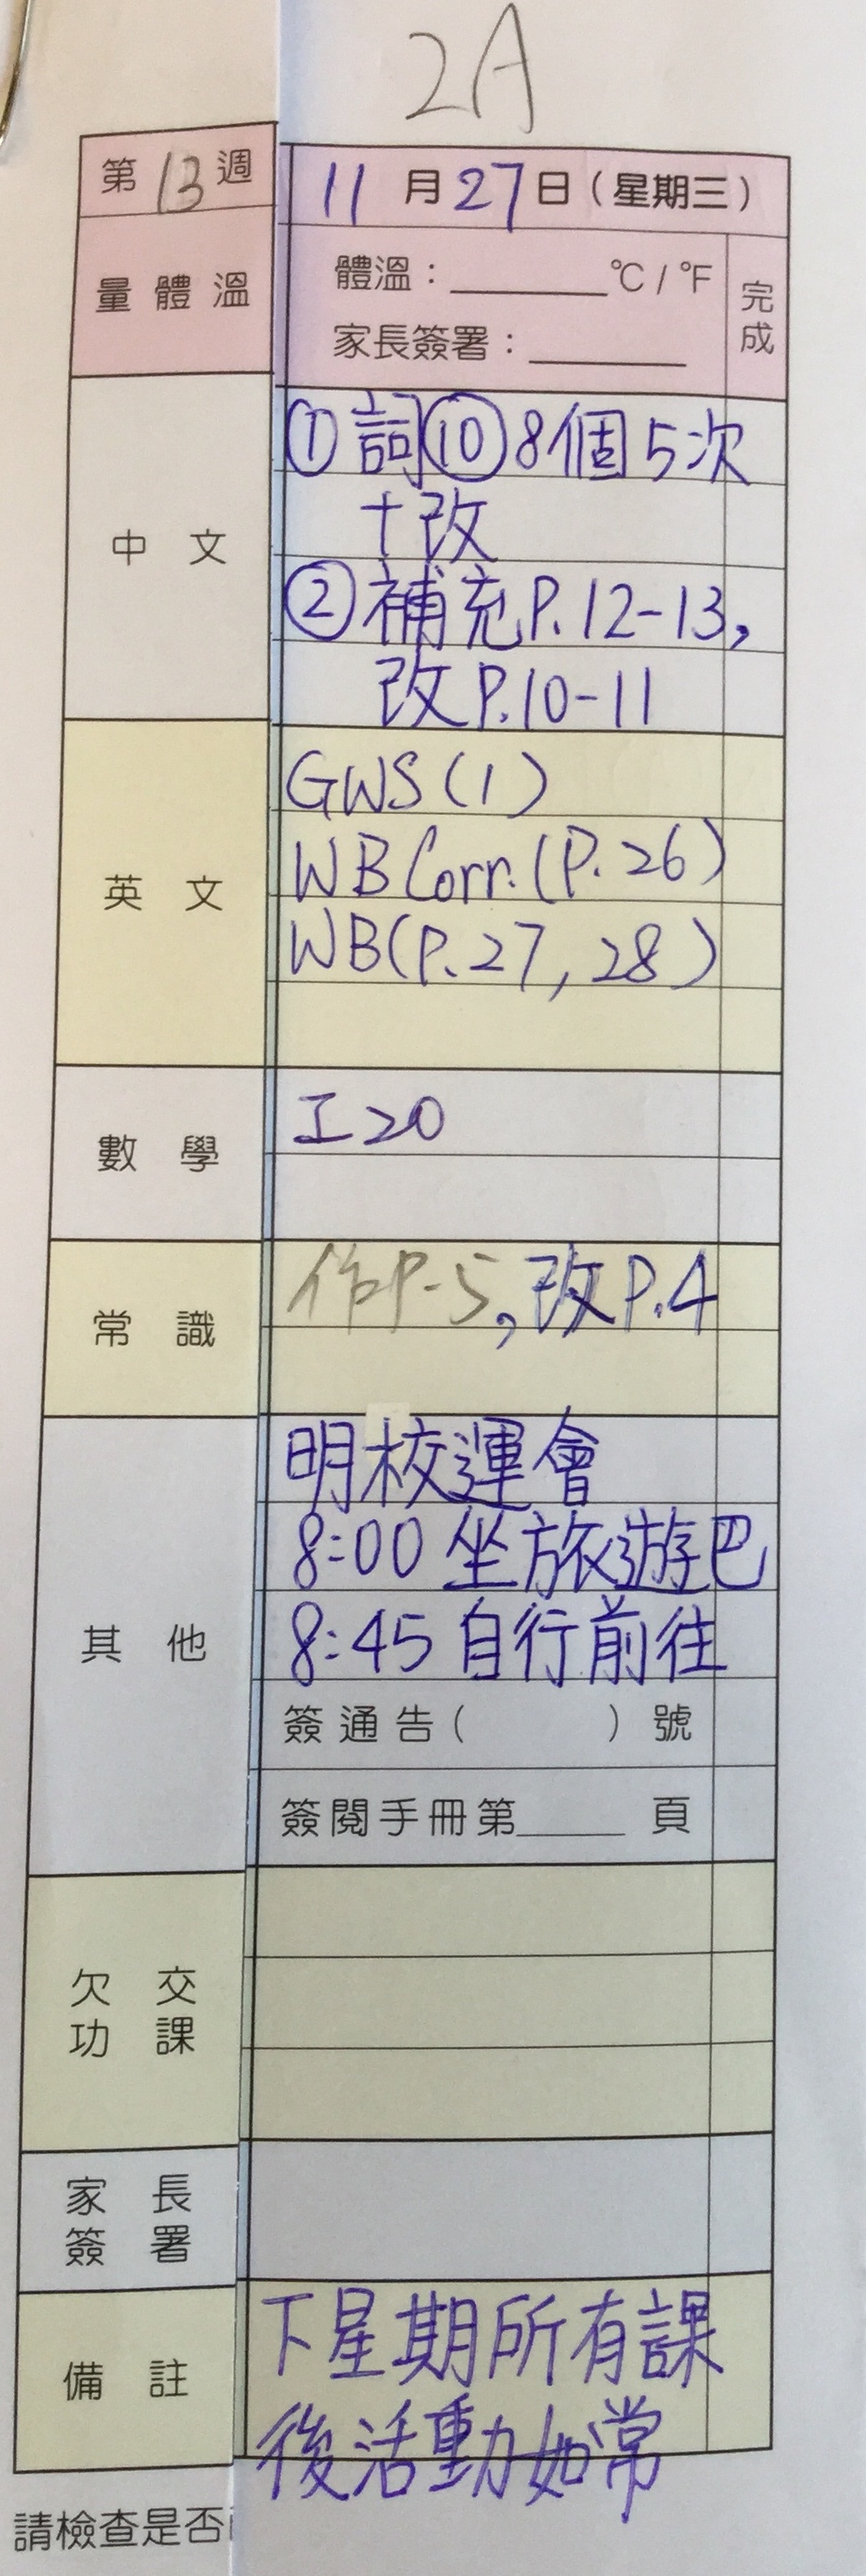 2A
第13週 11月27日(星期三)
量體溫
體溫：______℃/℉
家長簽署：______
完成
中文
①詞⑩8個5次
+改
②補充P.12-13,
改P.10-11
英文
GWS(1)
WB Corr.(P.26)
WB(P.27,28)
數學
工20
常識
作P.5,改P.4
其他
明校運會
8:00坐旅遊巴
8:45自行前往
簽通告( )號
簽閱手冊第____頁
欠交
功課
家長
簽署
備註
下星期所有課
後活動如常
請檢查是否